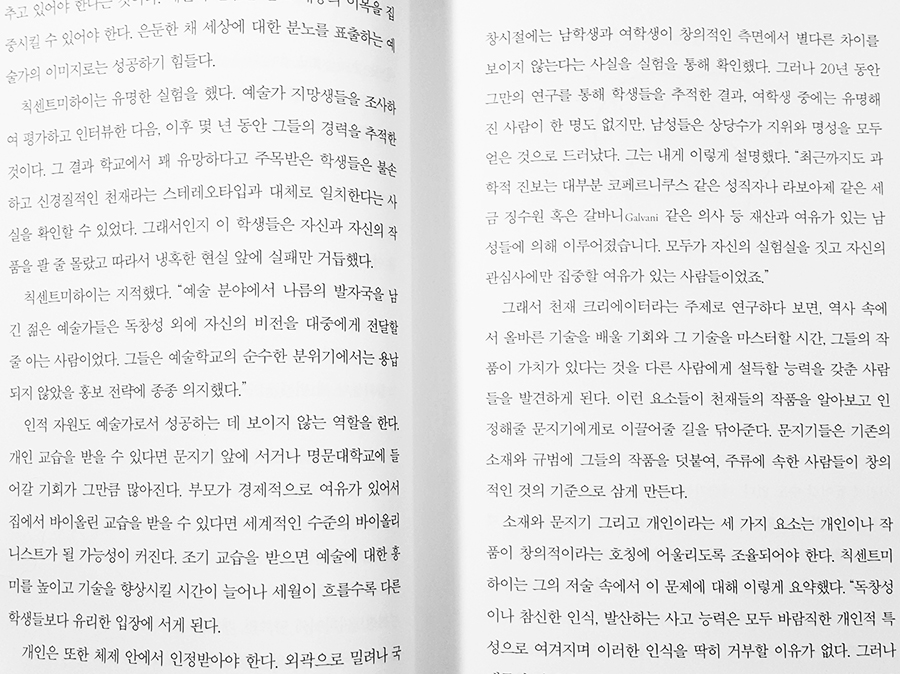 추고 있어야 한다는 것이다.
중시킬 수 있어야 한다. 은둔한 채 세상에 대한 분노를 표출하는 예
술가의 이미지로는 성공하기 힘들다.
칙센트미하이는 유명한 실험을 했다. 예술가 지망생들을 조사하
여 평가하고 인터뷰한 다음, 이후 몇 년 동안 그들의 경력을 추적한
것이다. 그 결과 학교에서 꽤 유망하다고 주목받은 학생들은 불손
하고 신경질적인 천재라는 스테레오타입과 대체로 일치한다는 사
실을 확인할 수 있었다. 그래서인지 이 학생들은 자신과 자신의 작
품을 팔 줄 몰랐고 따라서 냉혹한 현실 앞에 실패만 거듭했다.
칙센트미하이는 지적했다. “예술 분야에서 나름의 발자국을 남
긴 젊은 예술가들은 독창성 외에 자신의 비전을 대중에게 전달할
줄 아는 사람이었다. 그들은 예술학교의 순수한 분위기에서는 용납
되지 않았을 홍보 전략에 종종 의지했다.”
인적 자원도 예술가로서 성공하는 데 보이지 않는 역할을 한다.
개인 교습을 받을 수 있다면 문지기 앞에 서거나 명문대학교에 들
어갈 기회가 그만큼 많아진다. 부모가 경제적으로 여유가 있어서
집에서 바이올린 교습을 받을 수 있다면 세계적인 수준의 바이올리
니스트가 될 가능성이 커진다. 조기 교습을 받으면 예술에 대한 흥
미를 높이고 기술을 향상시킬 시간이 늘어나 세월이 흐를수록 다른
학생들보다 유리한 입장에 서게 된다.
개인은 또한 체제 안에서 인정받아야 한다. 외곽으로 밀려나 국
창시절에는 남학생과 여학생이 창의적인 측면에서 별다른 차이를
보이지 않는다는 사실을 실험을 통해 확인했다. 그러나 20년 동안
그만의 연구를 통해 학생들을 추적한 결과, 여학생 중에는 유명해
진 사람이 한 명도 없지만, 남성들은 상당수가 지위와 명성을 모두
얻은 것으로 드러났다. 그는 내게 이렇게 설명했다. “최근까지도 과
학적 진보는 대부분 코페르니쿠스 같은 성직자나 라보아제 같은 세
금 징수원 혹은 갈바니Galvani 같은 의사 등 재산과 여유가 있는 남
성들에 의해 이루어졌습니다. 모두가 자신의 실험실을 짓고 자신의
관심사에만 집중할 여유가 있는 사람들이었죠.”
그래서 천재 크리에이터라는 주제로 연구하다 보면, 역사 속에
서 올바른 기술을 배울 기회와 그 기술을 마스터할 시간, 그들의 작
품이 가치가 있다는 것을 다른 사람에게 설득할 능력을 갖춘 사람
들을 발견하게 된다. 이런 요소들이 천재들의 작품을 알아보고 인
정해줄 문지기에게로 이끌어줄 길을 닦아준다. 문지기들은 기존의
소재와 규범에 그들의 작품을 덧붙여, 주류에 속한 사람들이 창의
적인 것의 기준으로 삼게 만든다.
소재와 문지기 그리고 개인이라는 세 가지 요소는 개인이나 작
품이 창의적이라는 호칭에 어울리도록 조율되어야 한다. 칙센트미
하이는 그의 저술 속에서 이 문제에 대해 이렇게 요약했다. “독창성
이나 참신한 인식, 발산하는 사고 능력은 모두 바람직한 개인적 특
성으로 여겨지며 이러한 인식을 딱히 거부할 이유가 없다. 그러나